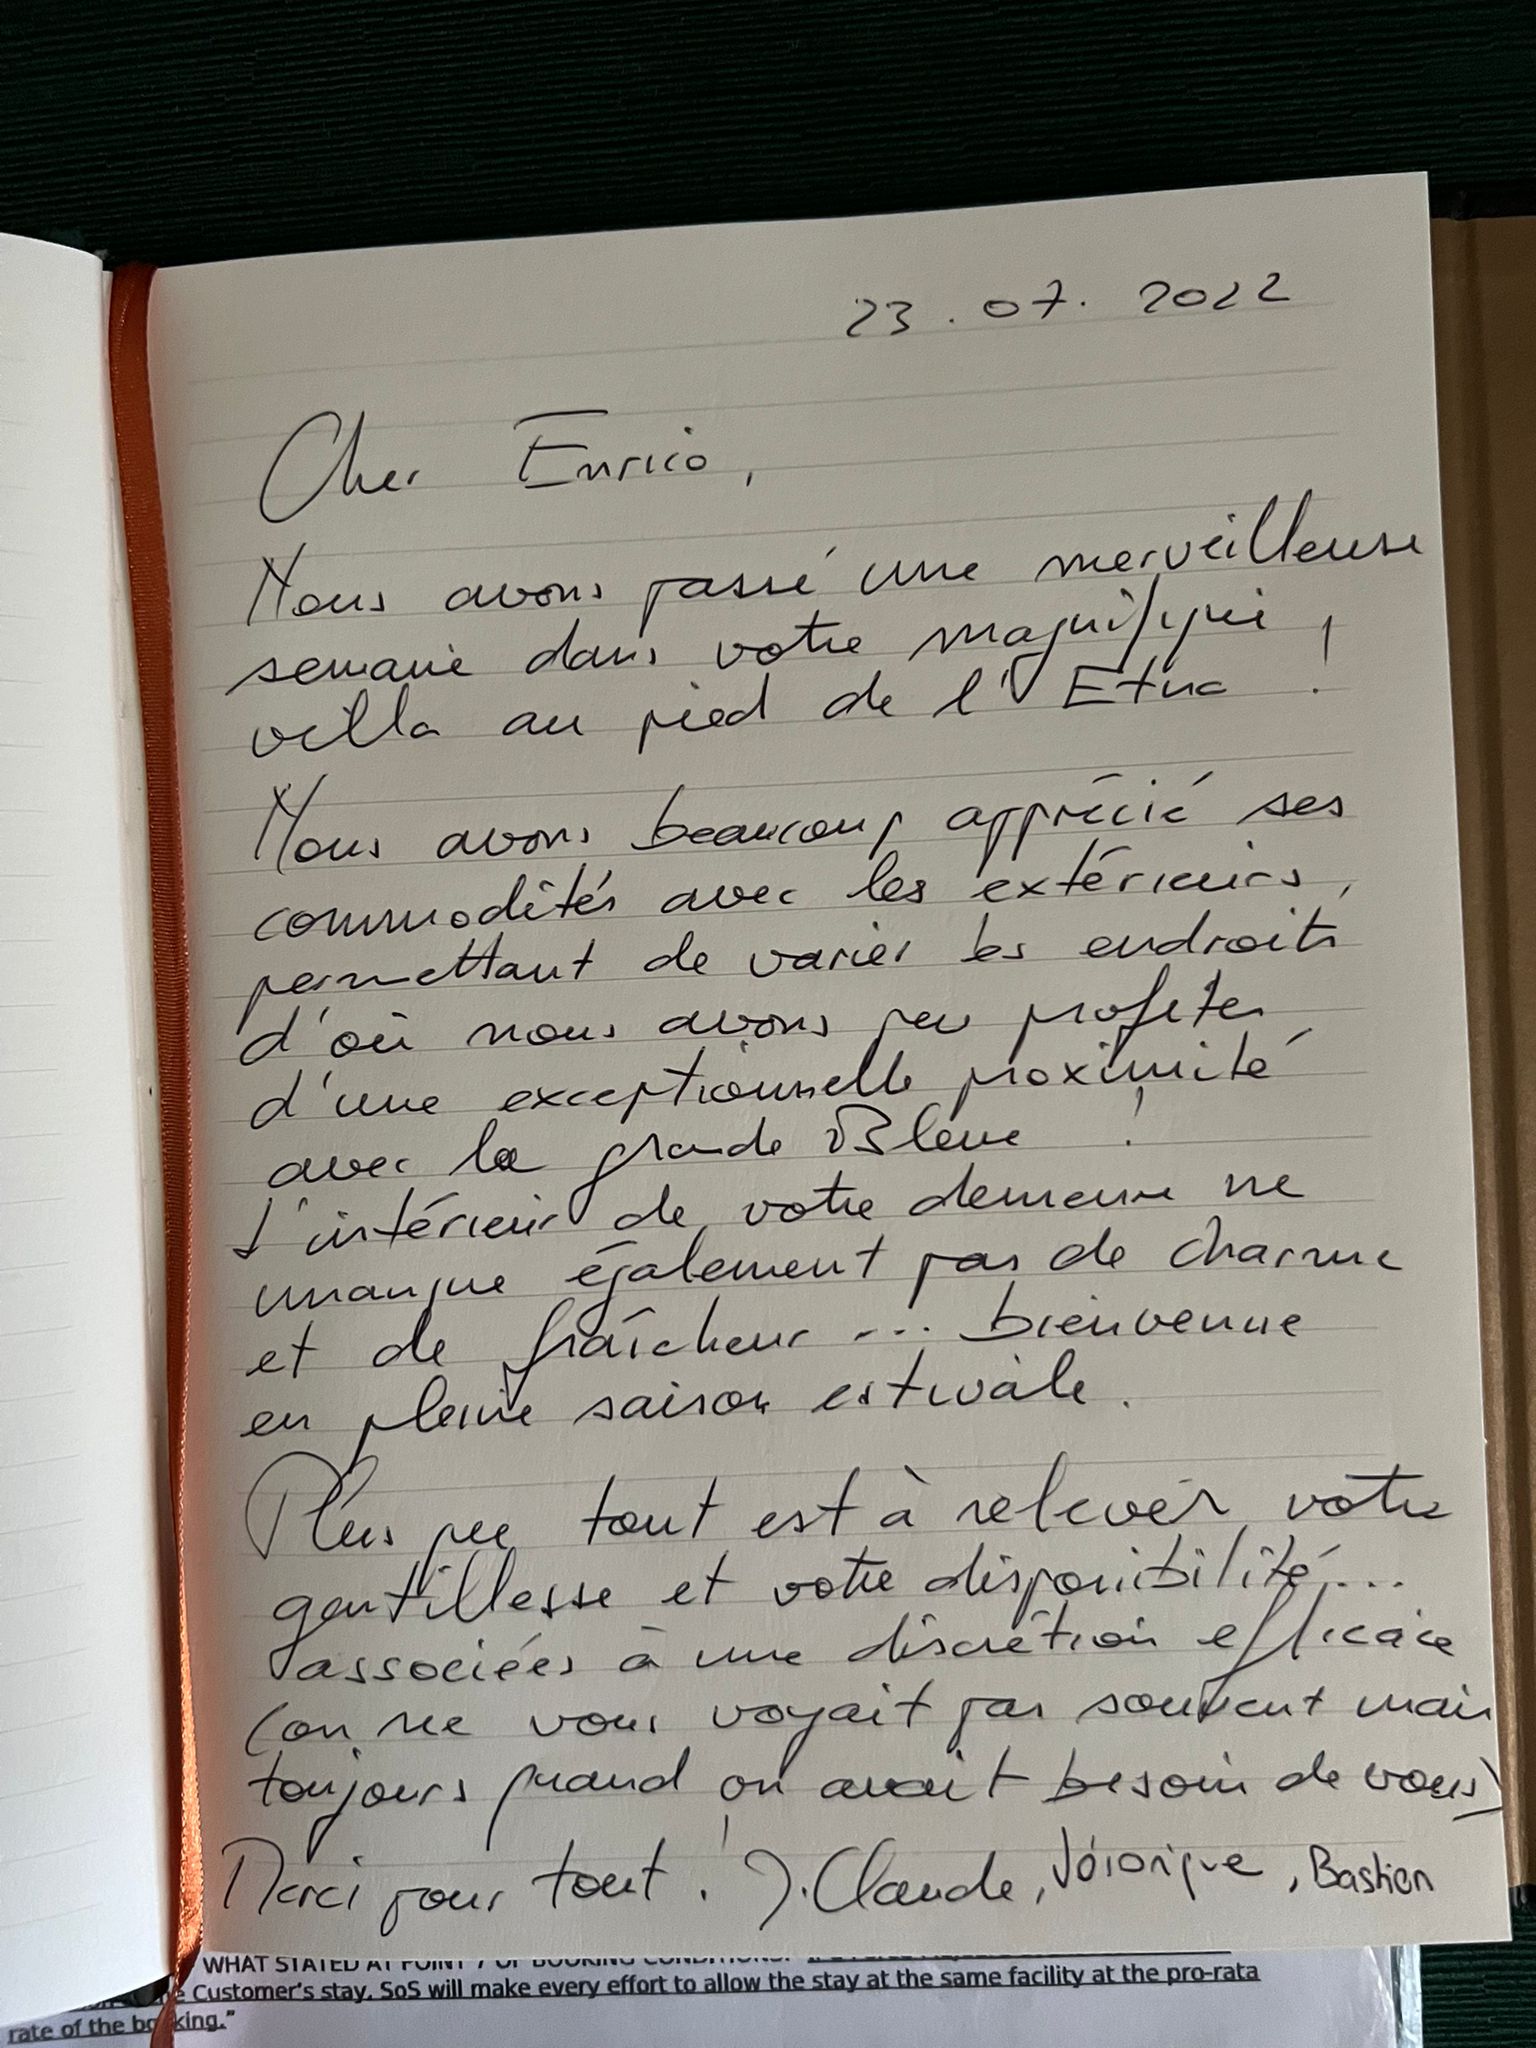 23.07.2022
Cher Enrico,
Nous avons passé une merveilleuse
semaine dans votre magnifique
villa au pied de l'Etna !
Nous avons beaucoup apprécié ses
commodités avec les extérieurs,
permettant de varier les endroits
d'où nous avons pu profiter
d'une exceptionnelle proximité
avec la grande Bleue !
L'intérieur de votre demeure ne
manque également pas de charme
et de fraîcheur... bienvenue
en pleine saison estivale.
Plus que tout est à relever votre
gentillesse et votre disponibilité...
associées à une discrétion efficace
(on ne vous voyait pas souvent mais
toujours quand on avait besoin de vous)
Merci pour tout ! J.Claude, Véronique, Bastien
WHAT STATED AT POINT 7 OF BOOKING CONDITIONS:
Customer's stay, SoS will make every effort to allow the stay at the same facility at the pro-rata
rate of the booking."